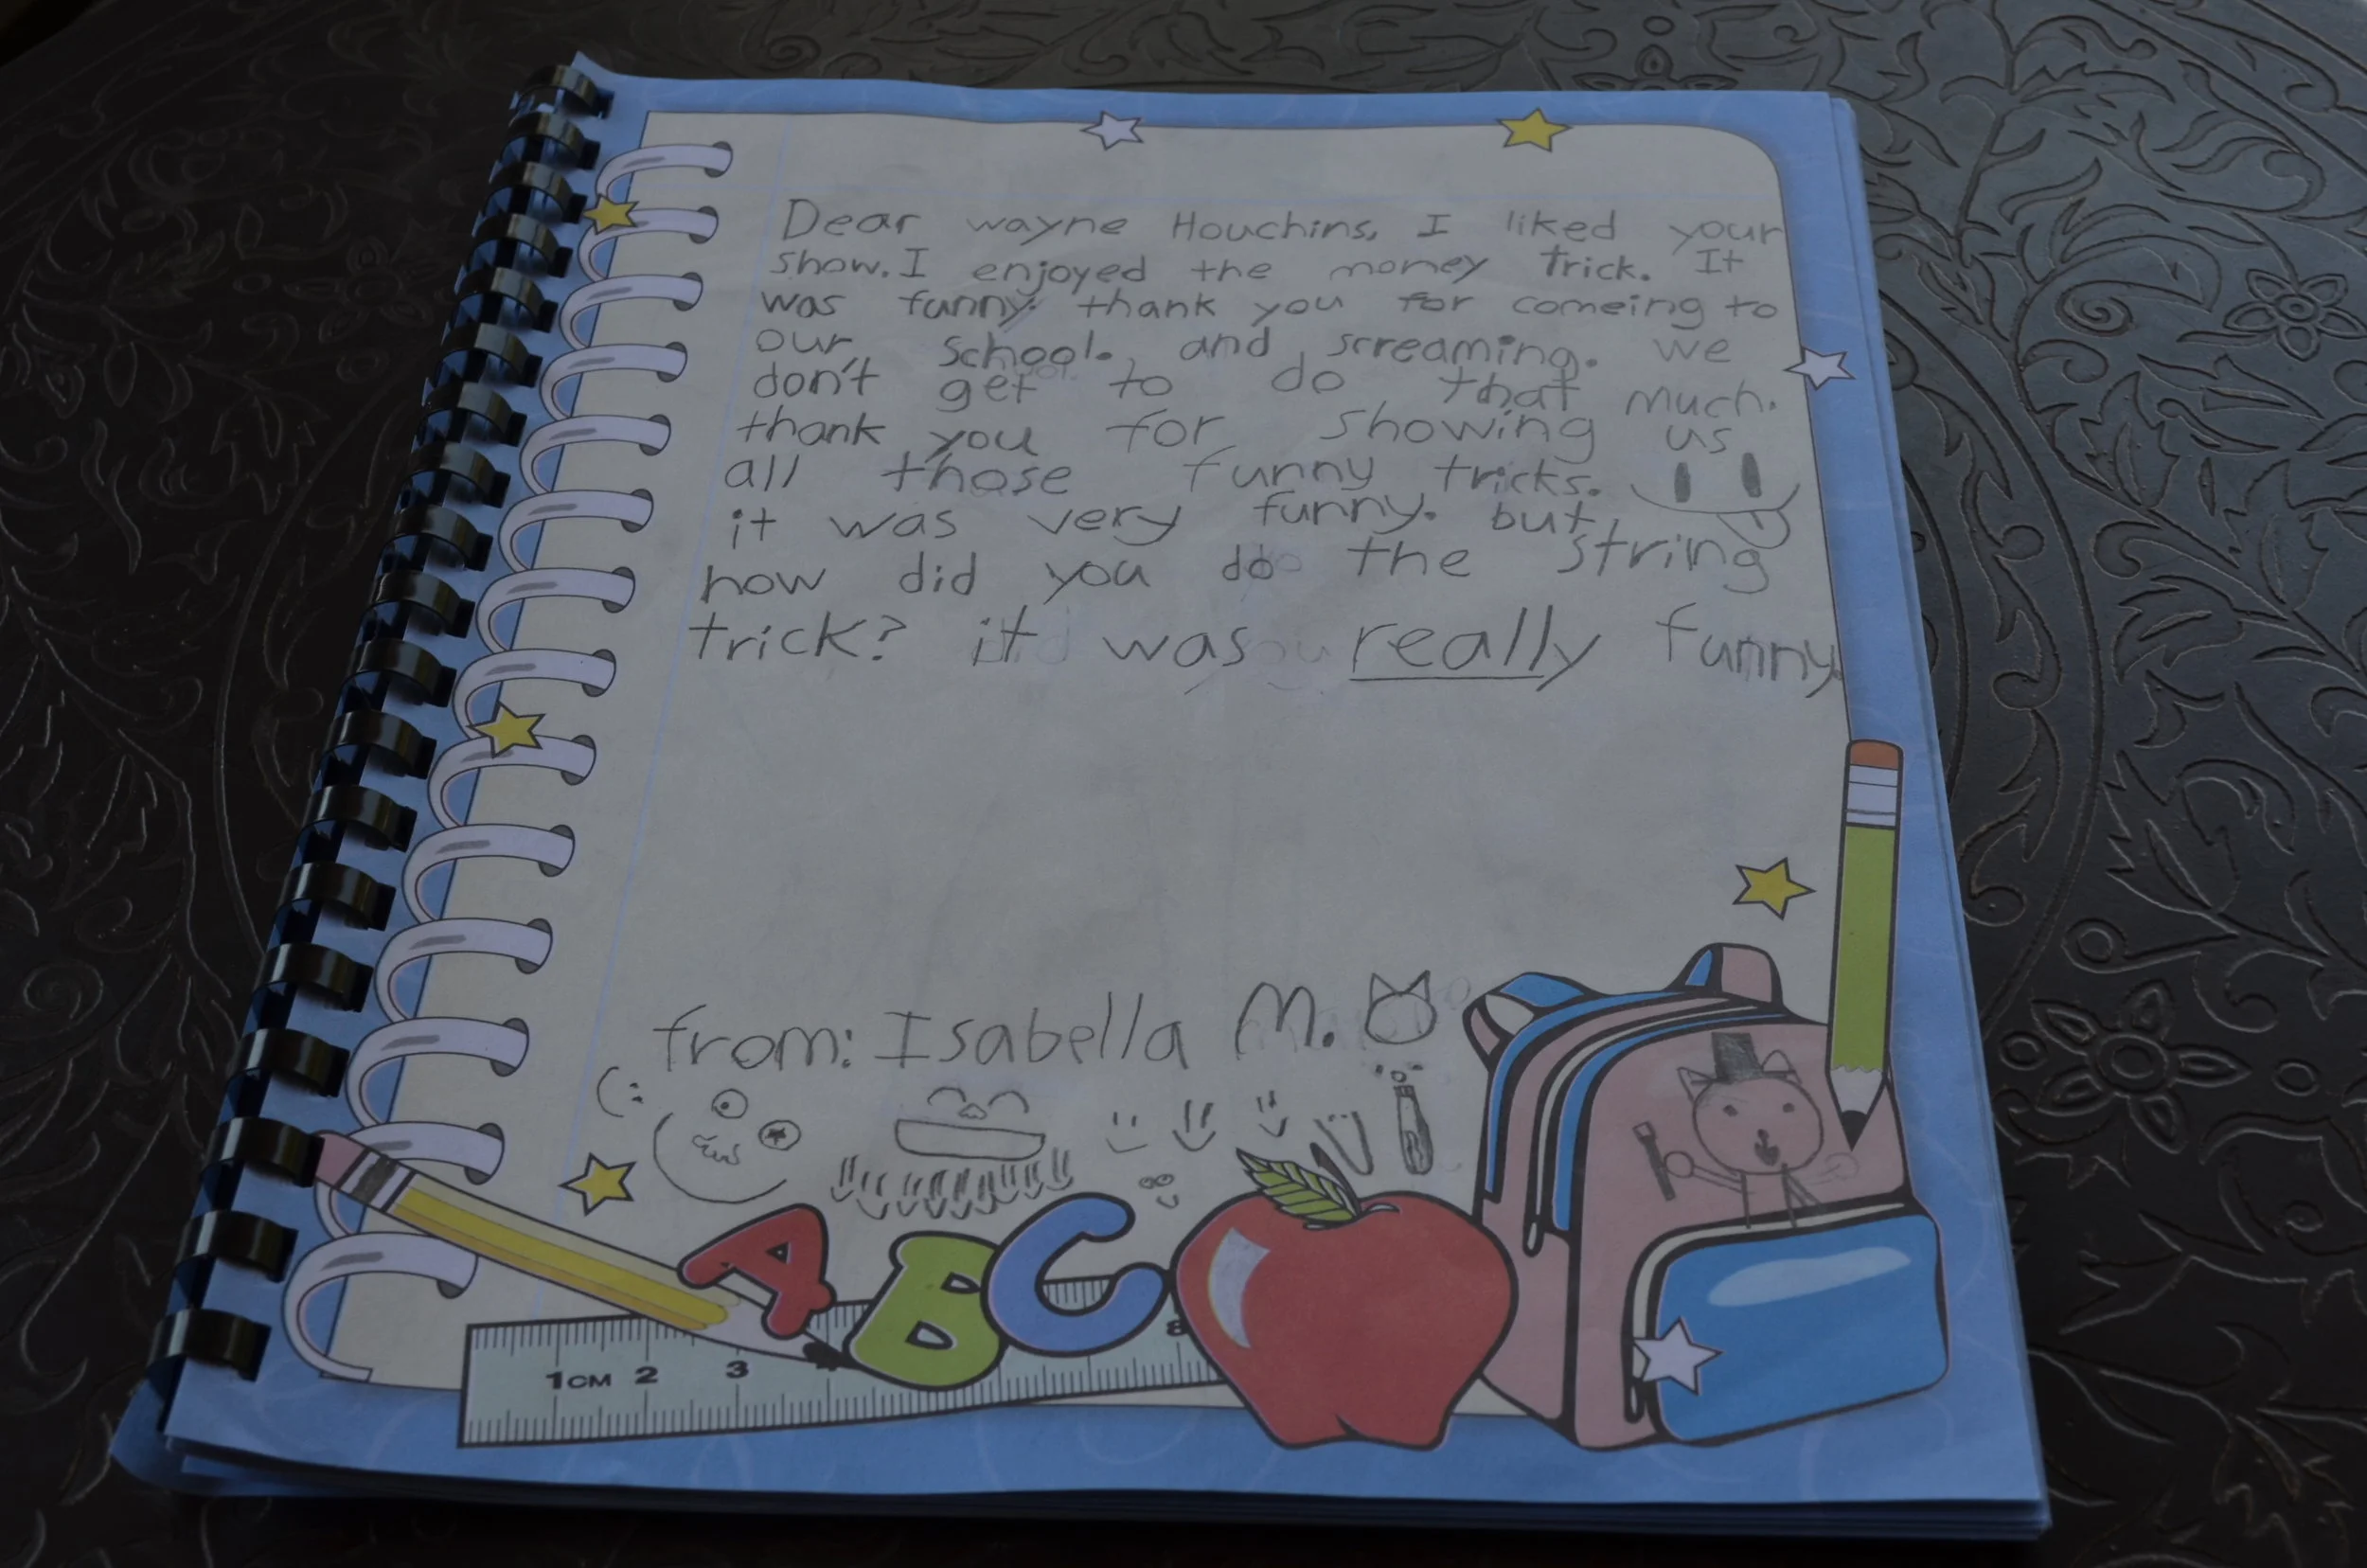 Dear wayne Houchins, I liked your
show. I enjoyed the money trick. It
was funny. thank you for comeing to
our school. and screaming. we
don't get to do that much.
thank you for showing us
all those funny tricks.
it was very funny. but,
how did you do the string
trick? it was really funny.
from: Isabella M.
ABC
1CM 2 3 8